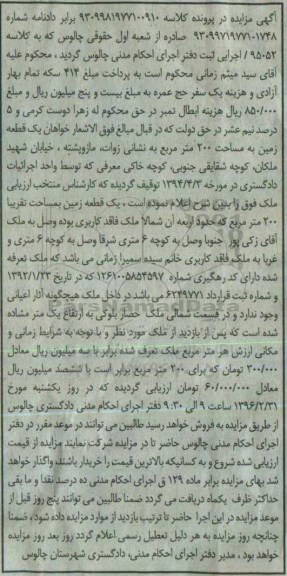 آگهی مزایده در پرونده کلاسه ۹۳۰۹۹۸۱۹۷۷۱۰۰۹۱۰ برابر دادنامه شماره
۹۳۰۹۹۷۱۹۷۷۱۰۱۷۴۸ صادره از شعبه اول حقوقی چالوس که به کلاسه
۹۵۰۵۲ / اجرایی ثبت دفتر اجرای احکام مدنی چالوس گردید ، محکوم علیه
آقای سید میثم زمانی محکوم است به پرداخت مبلغ ۴۱۴ سکه تمام بهار
آزادی و هزینه یک سفر حج عمره به مبلغ بیست و پنج میلیون ریال و مبلغ
۸۵۰/۰۰۰ ریال هزینه ابطال تمبر در حق محکوم له زهرا دوست کرمی و ۵
درصد نیم عشر در حق دولت که در قبال مبالغ فوق الاشعار خواهان یک قطعه
زمین به مساحت ۲۰۰ متر مربع به نشانی زوات، مازوپشته ، خیابان شهید
ملکان، کوچه شقایقی جنوبی، کوچه خاکی معرفی که توسط واحد اجرائیات
دادگستری در مورخه ۱۳۹۴/۴/۳ توقیف گردیده که کارشناس منتخب ارزیابی
ملک فوق را بدین شرح اعلام نموده است ، یک قطعه زمین بمساحت تقریبا
۲۰۰ متر مربع که حدود اربعه آن شمالا ملک فاقد کاربری بوده وصل به ملک
آقای زکی پور جنوبا وصل به کوچه ۶ متری شرقا وصل به کوچه ۶ متری و
غربا به ملک فاقد کاربری خانم سیده سمیرا زمانی می باشد که ملک تعرفه
شده دارای کد رهگیری شماره ۱۲۶۱۰۰۵۸۵۴۵۹۷ که در تاریخ ۱۳۹۲/۱/۲۳
و شماره ثبت قرارداد ۶۲۴۹۷۷۱ می باشد در داخل ملک هیچگونه آثار اعیانی
وجود ندارد و در قسمت شمالی ملک حصار بلوکی به ارتفاع یک متر مشاده
شده است که پس از بازدید از ملک مورد نظر و با توجه به شرایط زمانی و
مکانی ارزش هر متر مربع ملک تعرف شده برابر با سه میلیون ریال معادل
۳۰۰/۰۰۰ تومان که برای ۲۰۰ متر مربع برابر است با ششصد میلیون ریال
معادل ۶۰/۰۰۰/۰۰۰ تومان ارزیابی گردیده که در روز یکشنبه مورخ
۱۳۹۶/۲/۳۱ ساعت ۹ الی ۹:۳۰ دفتر اجرای احکام مدنی دادگستری چالوس
از طریق مزایده به فروش خواهد رسید طالبین می توانند در موعد مقرر در دفتر
اجرای احکام مدنی چالوس حاضر تا در مزایده شرکت نمایند مزایده از قیمت
ارزیابی شده شروع و به کسانیکه بالاترین قیمت را خریدار باشند، واگذار خواهد
شد بهای مزایده برابر ماده ۱۲۹ ق اجرای احکام مدنی ده درصد نقدا و ما بقی
حداکثر ظرف یکماه دریافت می گردد ضمنا طالبین می توانند پنج روز قبل از
موعد مزایده در این اجرا حاضر تا ترتیب بازدید از موارد مزایده داده شود ، ضمنا
چنانچه روز مزایده به هر دلیل تعطیل رسمی اعلام گردد روز بعد روز مزایده
خواهد بود ، مدیر دفتر اجرای احکام مدنی، دادگستری شهرستان چالوس